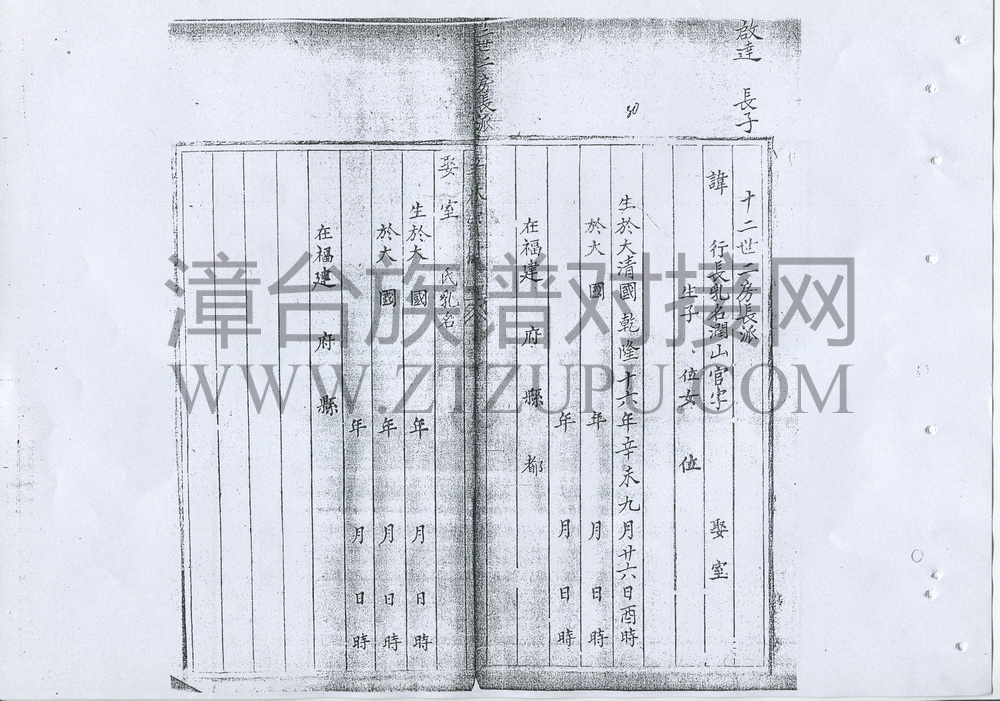 啟達 長子
80
十二世二房長派
諱 娶室
行長乳名潤山官字
生子 位女 位
生於大清國乾隆十六年辛未九月廿六日酉時
於大 國 年 月 日 時
年 月 日 時
在福建 府 縣 都
二世二房長派
娶室 氏乳名
生於大 國 年 月 日 時
於大 國 年 月 日 時
年 月 日 時
在福建 府 縣
漳台族谱对接网
WWW.ZTZUPU.COM